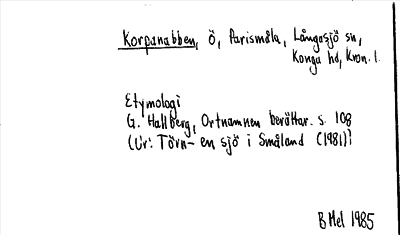 Korpanabben, Ö, Parismåla, Långasjö sn,
Konga hd, Kron. l.
Etymologi
G. Hallberg, Ortnamnen berättar. s. 108
(Ur: Törn - en sjö i Småland (1981))
B Mel 1985